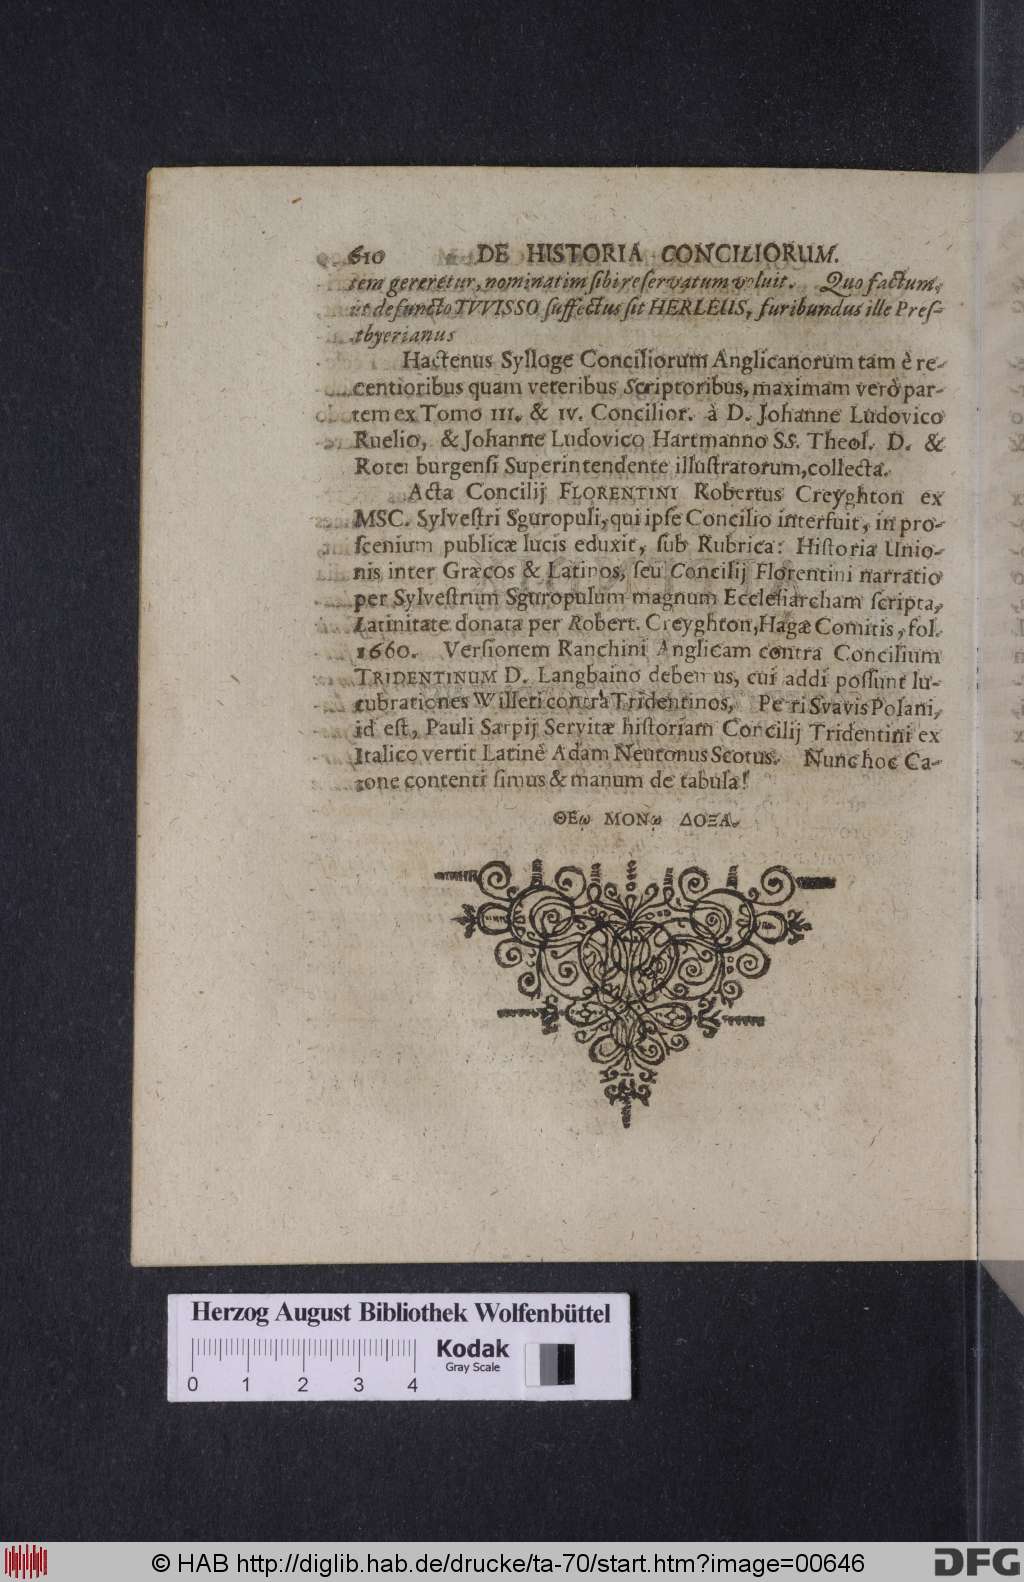 610 DE HISTORIA CONCILIORUM.
tem gereretur, nominatim sibi reservatum voluit. Quo factum,
ut defuncto TVVISSO suffectus sit HERLEUS, furibundus ille Pres-
tbyerianus
Hactenus Sylloge Conciliorum Anglicanorum tam è re-
centioribus quam veteribus Scriptoribus, maximam verò par-
tem ex Tomo III. & IV. Concilior. à D. Johanne Ludovico
Ruelio, & Johanne Ludovico Hartmanno SS. Theol. D. &
Rotenburgensi Superintendente illustratorum, collecta.
Acta Concilij FLORENTINI Robertus Creyghton ex
MSC. Sylvestri Sguropuli, qui ipse Concilio interfuit, in pro-
scenium publicæ lucis eduxit, sub Rubrica: Historia Unio-
nis inter Græcos & Latinos, seu Concilij Florentini narratio
per Sylvestrum Sguropulum magnum Ecclesiarcham scripta,
Latinitate donata per Robert. Creyghton, Hagæ Comitis, fol.
1660. Versionem Ranchini Anglicam contra Concilium
TRIDENTINUM D. Langbaino debemus, cui addi possunt lu-
cubrationes Willeti contrà Tridentinos, Petri Svavis Polani,
id est, Pauli Sarpij Servitæ historiam Concilij Tridentini ex
Italico vertit Latinè Adam Neutonus Scotus. Nunc hoc Ca-
none contenti simus & manum de tabula!
ΘΕῳ ΜΟΝῳ ΔΟΞΑ.
Herzog August Bibliothek Wolfenbüttel
Kodak
Gray Scale
0 1 2 3 4
© HAB http://diglib.hab.de/drucke/ta-70/start.htm?image=00646
DFG